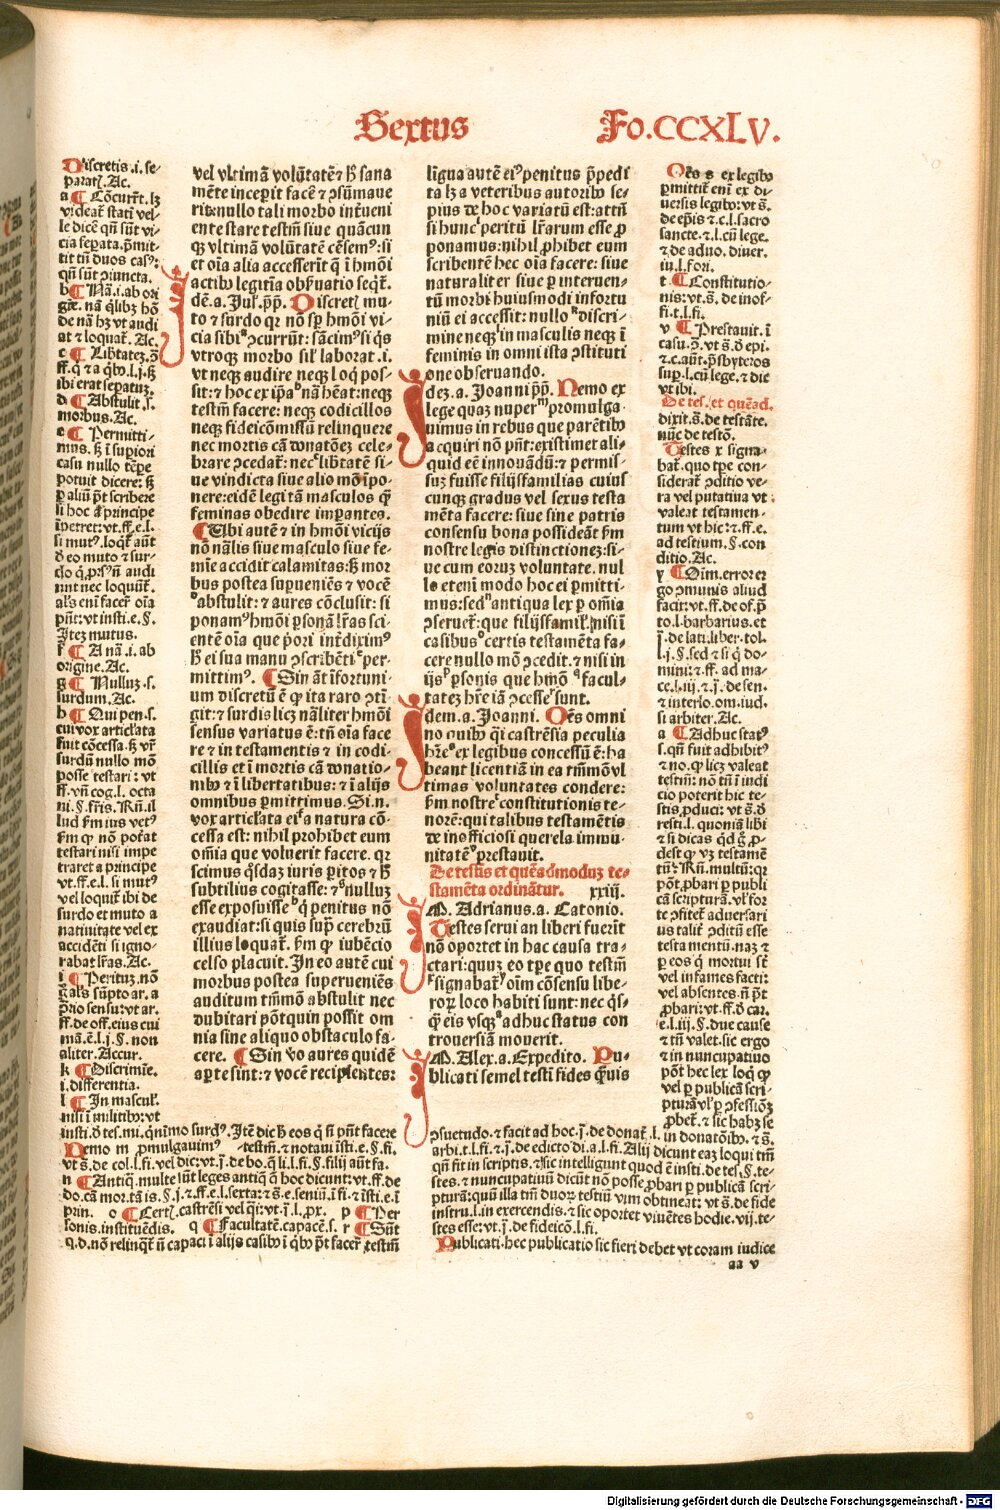 Sextus Fo.CCXLV.
Discretis .i. se-
parat᷒. Ac.
a ¶ Cōcurrt. lꝫ
videat᷒ stati vel-
le dicē qn̄ sūt vi-
cia seṗata. ꝑmit-
tit tn̄ duos casꝰ:
qn̄ sūt ɔiuncta.
b ¶ Nā .i. ab ori
de nā hꝫ vt audi
at ⁊ loquat᷒. Ac.
c ¶ Libtatez. ꝓ
ibi erat seṗatuꝫ.
d ¶ Abstulit .s.
morbus. Ac.
e ¶ Permitti-
mus. sꝫ ī supiori
casu nullo tēpe
potuit dicere: sꝫ
ꝑ aliū pt̄ scribere
si hoc a principe
ipetret: vt. ff. e. l.
si mutꝰ. loqr̄ aūt
d eo muto ⁊ sur-
unt nec loquūt᷒.
als eni facer̄ oīa
pn̄t: vt insti. e. §.
Iteꝫ mutus.
f ¶ A nā .i. ab
origine. Ac.
g ¶ Nulluꝫ .s.
surdum. Ac.
h ¶ Qui pen .s.
cui vox articlata
fuit cōcessa. sꝫ vr̄
surdū nullo mō
posse testari: vt
ff. vn̄ cog. l. octa
ni. §. fr̄is. Rn̄. il
lud fm ius vetꝰ
fm qd nō poťat
testari nisi impe
traret a principe
vt. ff. e. l. si mutꝰ
vel loquit᷒ ibi de
surdo et muto a
nativitate vel ex
accidēti si igno-
rabat lr̄as. Ac.
i ¶ Peritūꝫ. nō
ff. de off. eius cui
mā. ē. l. j. §. non
aliter. Accur.
k ¶ Discrimīe.
i. differentia.
l ¶ In masculꝭ.
nisi ī militibꝰ: vt
vel vltimā volūtatē ⁊ hꝫ sana
mēte inceperit facē ⁊ ɔsūmaue
rit: nullo tali morbo inťueni
ente stare testm̄ siue quācun
qꝫ vltimā volūtatē cēsemꝰ: si
et oīa alia accesserīt q̄ ī hmōi
actibꝰ legitīa obsuatio seqt᷒.
dē. a. Jul. pp̄. Discret᷒ mu-
to ⁊ surdo qr nō sp̄ hmōi vi-
cia sibi ɔcurrūt: sācimꝰ si qs
vtroqꝫ morbo sil᷒ laborat .i.
vt neqꝫ audire neqꝫ loq pos-
sit: ⁊ hoc ex ipa nā hēat: neqꝫ
testm̄ facere: neqꝫ codicillos
neqꝫ fideicōmissū relinquere
nec mortis cā donatōeꝫ cele-
brare ɔcedat᷒: nec libtatē si-
ue vindicta siue alio mō īpo-
nere: eidē legi tā masculos q̄ꝫ
feminas obedire impantes.
¶ Ubi autē ⁊ in hmōi vicijs
nō nalis siue masculo siue fe-
mīe accidit calamitas: sꝫ mor
bus postea supueniēs ⁊ vocē
abstulit: ⁊ aures cōclusit: si
ponamꝰ hmōi ꝑsonā lr̄as sci-
entē oīa que pori inťdiximꝰ
hꝫ ei sua manu ɔscribēti per-
mittimꝰ. ¶ Sin āt īfortuni-
um discretū ē qd ita raro ɔti-
git: ⁊ surdis licꝫ naliter hmōi
sensus variatus ē: tn̄ oīa face
re ⁊ in testamentis ⁊ in codi-
cillis et ī mortis cā donatio-
nibꝰ ⁊ ī libertatibus: ⁊ ī alijs
omnibus ꝑmittimus. Si. n.
vox articlata ei a natura cō-
cessa est: nihil prohibet eum
omīa que voluerit facere. qr
scimus qsdaꝫ iuris ꝑitos ⁊ hꝫ
subtilius cogitasse: ⁊ nulluꝫ
esse exposuisse q penitus nō
exaudiat: si quis sup cerebrū
illius loquat᷒. fm qd iubēcio
celso placuit. In eo autē cui
morbus postea superueniēs
auditum tm̄mō abstulit nec
dubitari pōt quin possit om
nia sine aliquo obstaculo fa-
cere. ¶ Sin vo aures quidē
aparte sint: ⁊ vocē recipientes:
ligua autē eiꝰ penitus ṗpedi
ta lꝫ a veteribus autoribꝰ se-
pius de hoc variatū est: attn̄
si hunc peritū lr̄arum esse ꝓ
ponamus: nihil ꝓhibet eum
scribentē hec oīa facere: siue
naturaliter siue ꝑ interuen-
tū morbi huiusmodi infortu
niū ei accessit: nullo discri-
mine neqꝫ in masculis neqꝫ ī
feminis in omni ista ɔstituti
one obseruando.
deꝫ. a. Joanni pp̄. Nemo ex
lege quaꝫ nuper promulga
uimus in rebus que parētibꝰ
acquiri nō pn̄t: existimet ali-
quid eē innouādū: ⁊ permis-
suꝫ fuisse filijsfamilias cuius
cunqꝫ gradus vel sexus testa
mēta facere: siue sine patris
consensu bona possideāt fm
nostre legis distinctioneꝫ: si-
ue cum eoruꝫ voluntate. nul
lo etenī modo hoc ei ꝑmitti-
mus: sed antiqua lex ꝑ omīa
ɔseruet᷒: que filijsfamil᷒. nisi ī
casibus certis testamēta fa-
cere nullo mō ɔcedit. ⁊ nisi in
ijs ꝑsonis que hmōi facul-
tateꝫ hr̄e iā ɔcesse sunt.
dem. a. Joanni. Oēs omni
no quibꝰ qi castrēsia peculia
hr̄e ex legibus concessū ē: ha
beant licentiā in ea tm̄mō vl
timas voluntates condere:
fm nostre constitutionis te-
norē: qui talibus testamētis
de inofficiosi querela immu-
nitatē prestauit.
De testibꝰ et quēadmoduꝫ te-
stamēta ordinātur. xxiij.
M. Adrianus. a. Catonio.
Testes serui an liberi fuerīt
nō oportet in hac causa tra-
ctari: quuꝫ eo tpe quo testm̄
signabat᷒ oīm cōsensu libe-
rorꝫ loco habiti sunt: nec qs-
q̄ eis vsqꝫ adhuc status con
trouersiā mouerit.
M. Alex. a. Expedito. Pu-
blicati semel testi fides q̄uis
Oēs s ex legibꝰ
ꝑmittit᷒ eni ex di-
uersis legibꝰ: vt s.
de epis ⁊ c. l. sacro
sancte. ⁊ l. cū lege.
⁊ de aduo. diuer.
iu. l. fori.
t ¶ Constitutio-
nis: vt s. de inof-
fi. t. l. fi.
v ¶ Prestauit. ī
casu. ɔ. vt s. d epi.
⁊ c. aut. psbyteros
sup. l. cū lege. ⁊ dic
vt ibi.
De tes. et quēad.
dixit. s. de testāte.
nūc de testō.
Testes x signa-
bāt. quo tpe con-
siderat᷒ ɔditio ve-
ra vel putatiua vt
valeat testamen-
tum vt hic: ⁊. ff. e.
ad testium. §. con
ditio. Ac.
y ¶ Oīm. error er
go ɔmunis aliud
facit: vt ff. de of. ꝓ
to. l. barbarius. et
j. de lati. liber. tol.
l. j. §. sed ⁊ si q do-
mini: ⁊ ff. ad ma-
ce. l. iij. ⁊ j. de sen.
⁊ interlo. om. iud.
si arbiter. Ac.
a ¶ Adhuc statꝰ
s. qn̄ fuit adhibitꝰ
⁊ no. qd licꝫ valeat
testm̄: nō tn̄ ī iudi
cio poterit hic te-
stis ꝓduci: vt s. d
testi. l. quoniā libi
⁊ si dicas qd g̊ ꝓ-
dest qd vꝫ testamē
tū: Rn̄. multū: qr
pōt ꝓbari ꝑ publi
cā scripturā. vl᷒ for
te ɔfitet᷒ aduersari
us talit᷒ ɔditū esse
testamentū. naꝫ ⁊
ꝑ eos q mortui st̄
vel infames facti:
vel absentes. n̄ pt̄
ꝓbari: vt ff. d car.
e. l. iij. §. due cause
⁊ tn̄ valet. sic ergo
⁊ in nuncupatiuo
pōt hec lex loq qd
vel ꝑ publicā scri-
pturā vl᷒ ꝑ ɔfessioꝫ
ꝓbet᷒. ⁊ sic habꝫ se
insti. d tes. mi. qnīmo surdꝰ. Itē dic hꝫ eos q si pn̄t facere
Nemo m ꝓmulgauimꝰ. testm̄. ⁊ notaui īsti. e. §. fi.
vt s. de col. l. fi. vel dic: vt. j. de bo. q li. l. fi. §. filij aūt fa.
n ¶ Antiq̄. multe sūt leges antiq̄ q̄ hoc dicunt: vt. ff. e. de
do. cā mor. tā is. §. j. ⁊ ff. e. l. sexta: ⁊ s. e. seniū. ī fi. ⁊ īsti. e. ī
prin. o ¶ Cert᷒. castrēsi vel qi: vt. ī. l. ꝓx. p ¶ Per
sonis. instituēdis. q ¶ Facultatē. capacē. s. r ¶ Sūt
q. d. nō relinqt᷒ n̄ capaci ī alijs casibꝰ ī qbꝰ pt̄ facer̄ testm̄
ɔsuetudo. ⁊ facit ad hoc. j. de donat᷒. l. in donatōibꝰ. ⁊ s.
arbi. t. l. fi. ⁊ j. de edicto di. a. l. fi. Alij dicunt eaꝫ loqui tm̄
qn̄ fit in scriptis. ⁊ sic intelligunt quod ē insti. de tes. §. te-
stes. ⁊ nuncupatiuū dicūt nō posse ꝓbari ꝑ publicā scri-
pturā: quū illa tm̄ duorꝫ testiū vim obtineat: vt s. de fide
instru. l. in exercendis. ⁊ sic oportet viuētes hodie. vij. te-
stes esse: vt. j. de fideicō. l. fi.
Publicati. hec publicatio sic fieri debet vt coram iudice
aa v
Digitalisierung gefördert durch die Deutsche Forschungsgemeinschaft - DFG